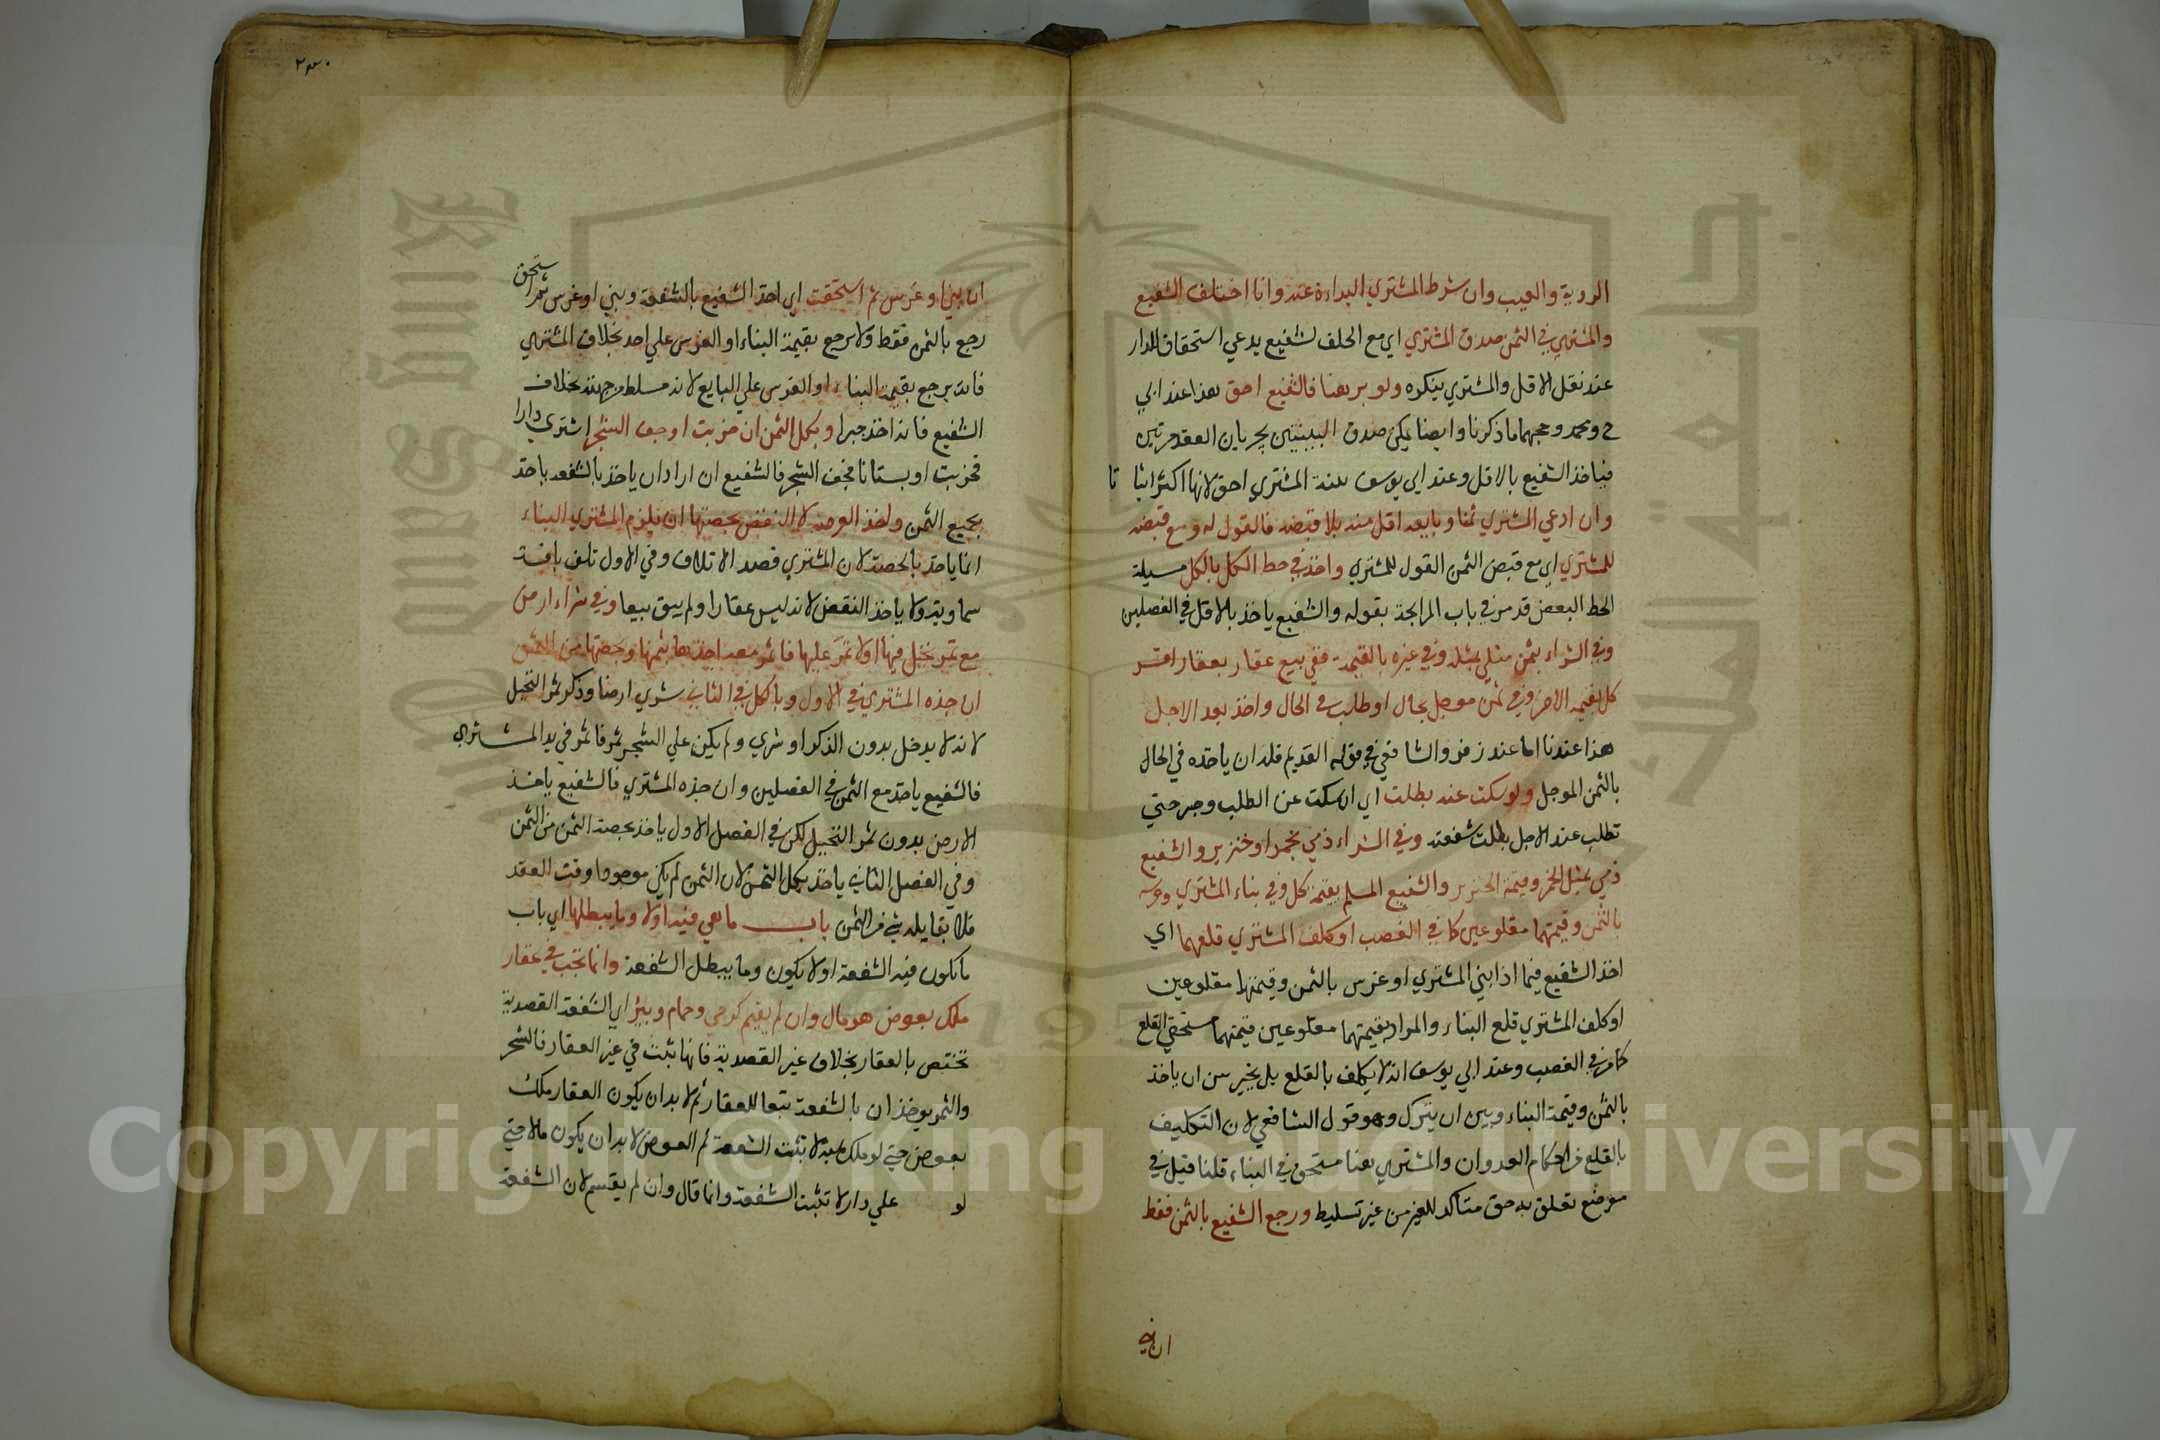 الروية والعيب وان شرط المشتري البراءة عنه وانا اختلف الشفيع
والمشتري في الثمن صدق المشتري اي مع الحلف لشفيع يدعي استحقاق الدار
عند نقل الاقل والمشتري ينكره ولو برهنا فالشفيع احق هذا عند ابي
ح ومحمد وحجهما ما ذكرنا وايضا يمكن صدق البينتين بجريان العقد مرتين
فياخذ الشفيع بالاقل وعند ابي يوسف بينة المشتري احق لانها اكثر اثبا تا
وان ادعي المشتري ثمنا وبايعه اقل منه بلا قبضه فالقول له ومع قبضه
للمشتري اي مع قبض الثمن القول للمشتري واخذ في حط الكل بالكل مسيلة
الحط البعض قد مر في باب المرابحة بقوله والشفيع ياخذ بالاقل في الفصلين
وفي الشراء بثمن مثلي بمثله وفي غيره بالقيمة ففي بيع عقار بعقار اخذ
كل بقيمة الاخر وفي ثمن موجل بحال او طلب في الحال واخذ بعد الاجل
هذا عندنا اما عند زفر والشافعي في قوله القديم فله ان ياخذه في الحال
بالثمن الموجل ولو سكت عنه بطلت اي ان سكت عن الطلب وصبر حتي
تطلب عند الاجل بطلت شفعته وفي الشراء ذمي بخمر او خنزير والشفيع
ذمي بمثل الخمر وقيمة الخنزير والشفيع المسلم بقيمة كل وفي بناء المشتري وغرسه
بالثمن وقيمتهما مقلوعين كما في الغصب او كلف المشتري قلعهما اي
اخذ الشفيع فيما اذا بني المشتري او غرس بالثمن وقيمتها مقلوعين
او كلف المشتري قلع البناء والمراد بقيمتهما مقلوعين قيمتهما مستحقي القلع
كما مر في الغصب وعند ابي يوسف انه لا يكلف بالقلع بل يخير من ان ياخذ
بالثمن وقيمة البناء وبين ان يترك وهو قول الشافعي لان التكليف
بالقلع من احكام العدوان والمشتري هنا مستحق في البناء قلنا قيل في
موضع تعلق به حق متاكد للغير من غير تسليط ورجع الشفيع بالثمن فقط
ان بني
٢٣٠
ان بني او غرس ثم استحقت اي اخذ الشفيع بالشفعة وبني او غرس ثم استحق
رجع بالثمن فقط ولا يرجع بقيمة البناء او الغرس علي احد بخلاف المشتري
فانه يرجع بقيمة البناء او الغرس علي البايع لانه مسلط من جهته بخلاف
الشفيع فانه اخذ جبرا وبكل الثمن ان خربت او جف الشجر اشتري دارا
فخربت او بستانا فجف الشجر فالشفيع ان اراد ان ياخذ بالشفعة ياخذ
بجميع الثمن واخذ العرصة لا النقض بحصتها ان نلزم المشتري البناء
انما ياخذ بالحصة لان المشتري قصد الاتلاف وفي الاول تلف بافة
سماوية ولا ياخذ النقض لانه ليس عقارا ولم يبق تبعا وفي شراء ارض
مع ثمر نخل فيها او لا ثمر عليها فاثمر معه اخذها بثمنها وبحصتها من الثمن
ان جذه المشتري في الاول وبالكل في الثاني شري ارضا وذكر ثمر النخيل
لانه لا يدخل بدون الذكر او شري ولم يكن علي الشجر ثمر فاثمر في يد المشتري
فالشفيع ياخذ مع الثمر في الفصلين وان جذه المشتري فالشفيع ياخذ
الارض بدون ثمر النخيل لكن في الفصل الاول ياخذ بحصة الثمن من الثمن
وفي الفصل الثاني ياخذ بكل الثمن لان الثمن لم يكن موجودا وقت العقد
فلا يقابله شي من الثمن باب ما هي فيه او لا وما يبطلها اي باب
ما تكون فيه الشفعة او لا يكون وما يبطل الشفعة وانما تجب في عقار
ملك بعوض هو مال وان لم يقسم كرحي وحمام وبير اي الشفعة القصدية
تختص بالعقار بخلاف غير القصدية فانها تثبت في غير العقار فالشجر
والثمر يوخذان بالشفعة تبعا للعقار ثم لا بد ان يكون العقار ملك
بعوض حتي لو ملك بهبة لا تثبت الشفعة ثم العوض لا بد ان يكون مالا حتي
لو علي دار لا تثبت الشفعة وانما قال وان لم يقسم لان الشفعة
Copyright © King Saud University
King Saud University
جامعة الملك سعود
1957